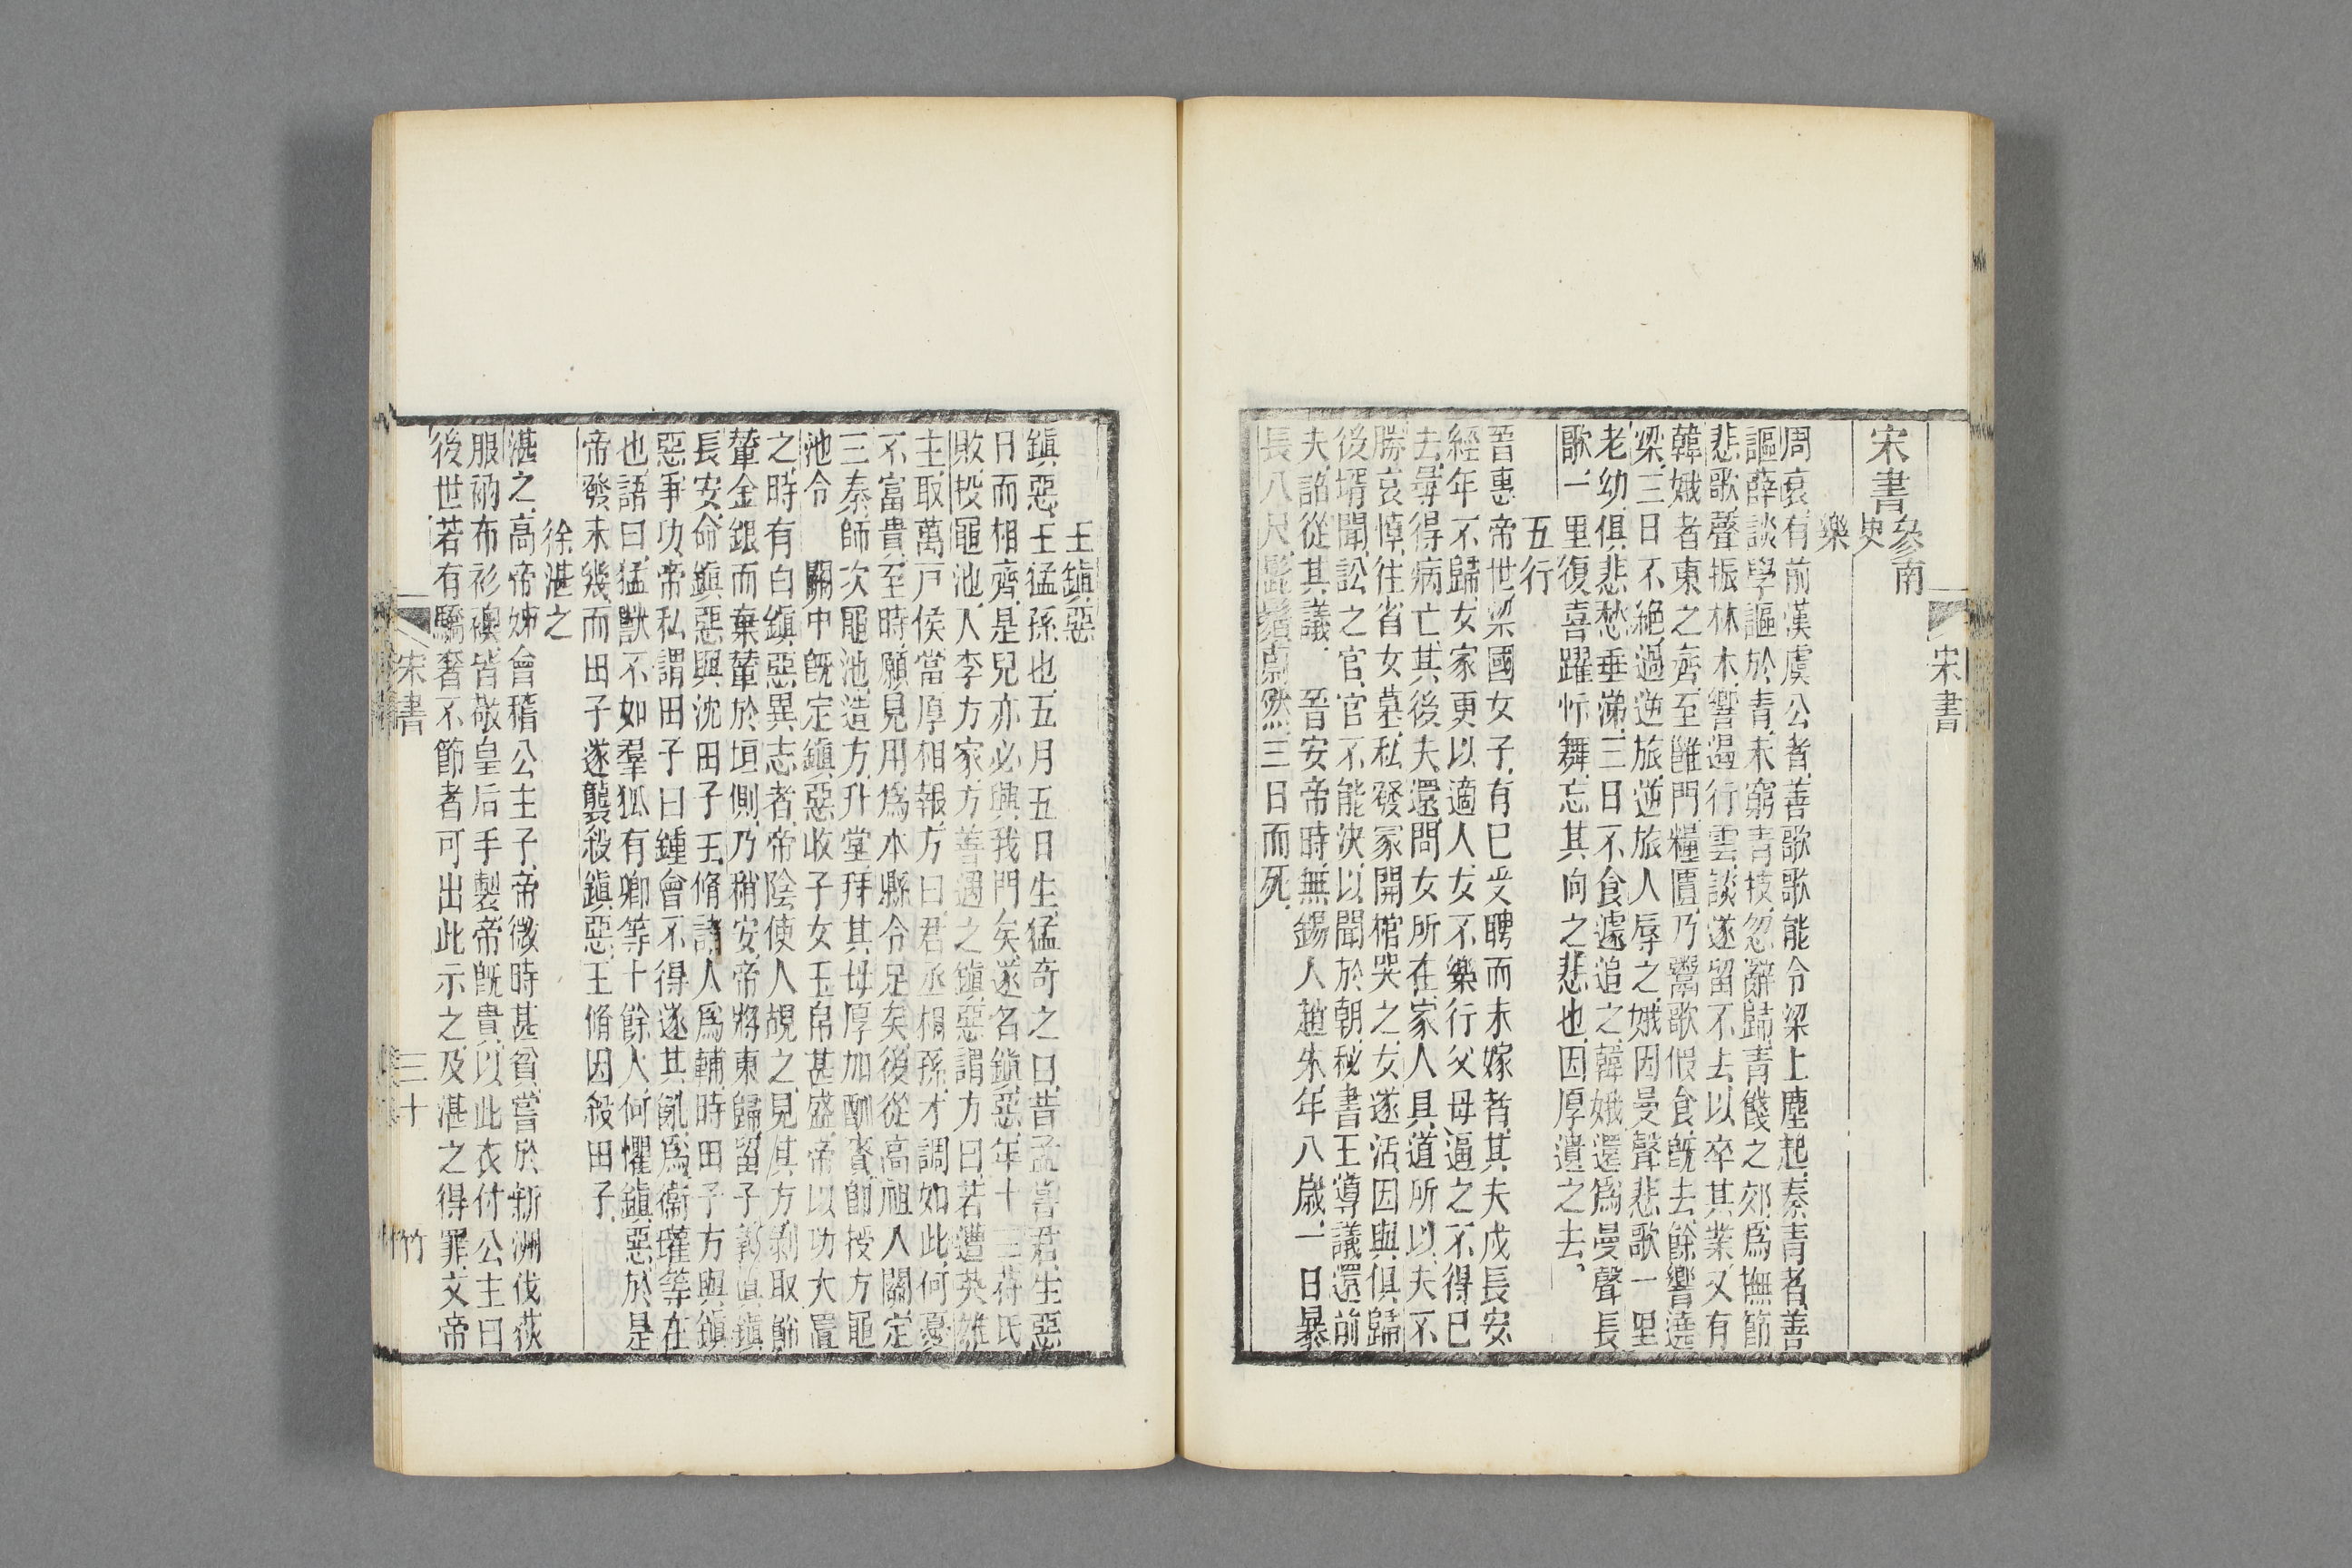 宋書
宋書參南史
樂
周衰有前漢虞公者善歌歌能令梁上塵起秦青者善
謳薛談學謳於青未窮青技忽辭歸青餞之郊爲撫節
悲歌聲振林木響遏行雲談遂留不去以卒其業又有
韓娥者東之齊至雝門糧匱乃鬻歌假食旣去餘響遶
梁三日不絕過逆旅逆旅人辱之娥因曼聲悲歌一里
老幼俱悲愁垂涕三日不食遽追之韓娥還爲曼聲長
歌一里復喜躍忭舞忘其向之悲也因厚遺之去
五行
晉惠帝世梁國女子有已受聘而未嫁者其夫戍長安
經年不歸女家更以適人女不樂行父母逼之不得已
去尋得病亡其後夫還問女所在家人具道所以夫不
勝哀悼往省女墓私發冢開棺哭之女遂活因與俱歸
後壻聞訟之官官不能決以聞於朝秘書王導議還前
夫詔從其議 晉安帝時無錫人趙朱年八歲一日暴
長八尺髭鬚蔚然三日而死
王鎮惡
鎮惡王猛孫也五月五日生猛奇之曰昔孟嘗君生惡
日而相齊是兒亦必興我門矣遂名鎮惡年十三苻氏
敗投黽池人李方家方善遇之鎮惡謂方曰若遭英雄
主取萬戸侯當厚相報方曰君丞相孫才調如此何憂
不富貴至時願見用爲本縣令足矣後從高祖入關定
三秦師次黽池造方升堂拜其母厚加酬賚卽授方黽
池令 關中旣定鎮惡收子女玉帛甚盛帝以功大置
之時有白鎮惡異志者帝陰使人覘之見其方剔取飾
輦金銀而棄輦於垣側乃稍安帝將東歸留子義眞鎮
長安命鎮惡與沈田子王脩諸人爲輔時田子方與鎮
惡爭功帝私謂田子曰鍾會不得遂其亂爲衞瓘等在
也語曰猛獸不如羣狐有卿等十餘人何懼鎮惡於是
帝發未幾而田子遂襲殺鎮惡王脩因殺田子
徐湛之
湛之高帝姊會稽公主子帝微時甚貧嘗於新洲伐荻
服衲布衫襖皆敬皇后手製帝旣貴以此衣付公主曰
後世若有驕奢不節者可出此示之及湛之得罪文帝
宋書
三十
竹